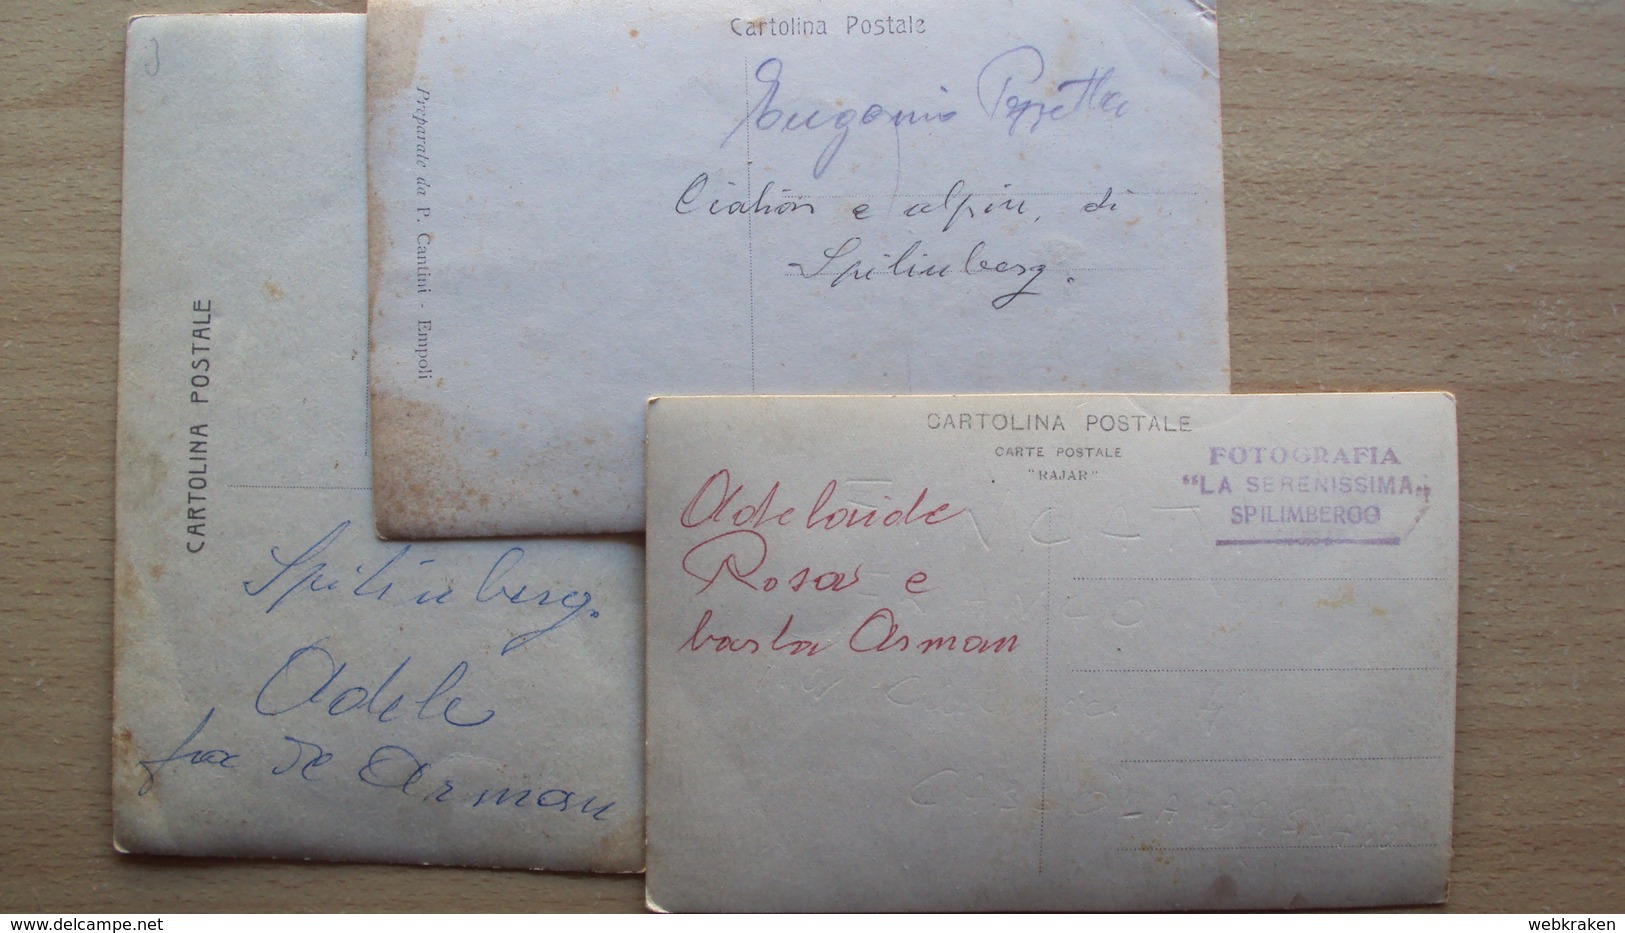 CARTOLINA POSTALE
Spilimberg.
Adele
De Arman
Cartolina Postale
Preparate da P. Cantini - Empoli
Eugenio
e alpin, di
Spilimberg.
CARTOLINA POSTALE
CARTE POSTALE
"RAJAR"
FOTOGRAFIA
"LA SERENISSIMA"
SPILIMBERGO
Adelaide
Rosa e
basta Arman
delcampe.net
webkraken